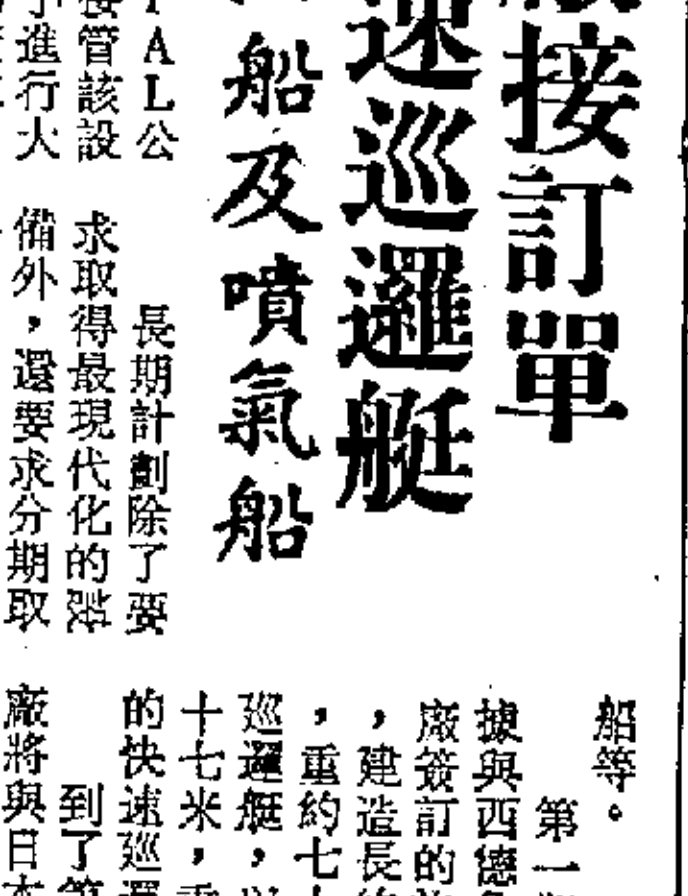 接訂單
速巡邏艇
船及噴氣船
ＰＡＬ公
接管該設
進行大
長期計劃除了要
求取得最現代化的
備外，還要求分期取
船等。
第一
據與西德
廠簽訂的
，建造長
，重約七
巡邏艇，
十七米，
的快速巡邏
到了第
廠將與日本